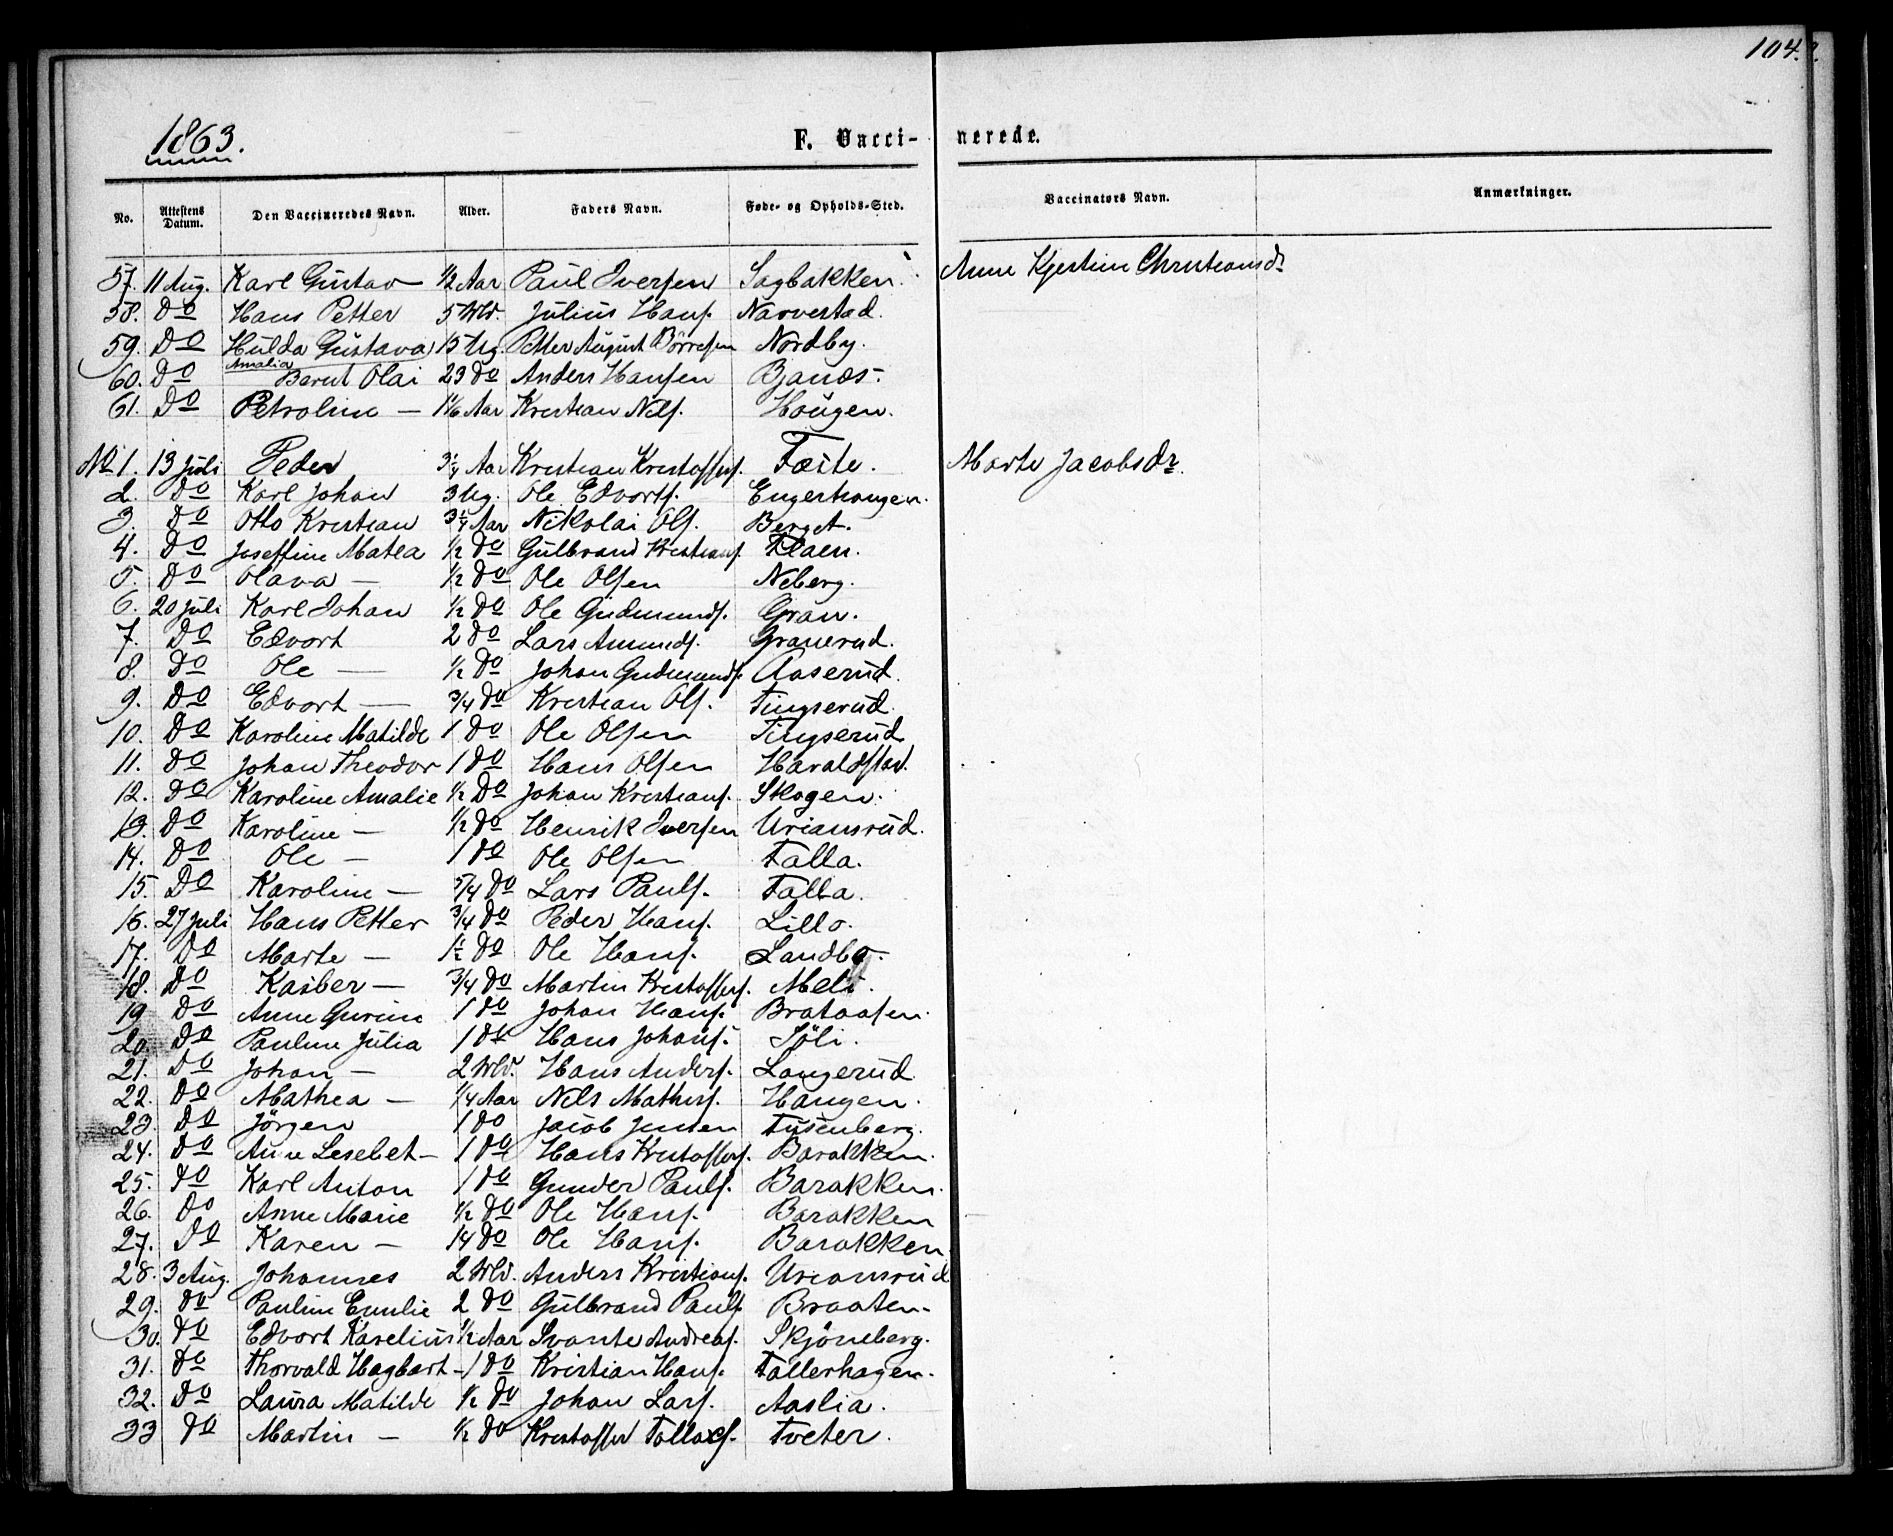 104.
1863.
F. Vaccinerede.
No. Attestens Datum. Den Vaccineredes Navn. Alder. Faders Navn. Føde- og Opholds-Sted. Vaccinators Navn. Anmærkninger.
57. 11 Aug. Karl Gustav — 1/2 Aar Paul Iversen Sagbakken. Anne Kjerstine Christiansdr
58. Do Hans Petter 5 Md. Julius Hans. Narvestad.
59. Do Hulda Gustava Amalia 15 Ug. Petter August Börresen Nordby.
60. Do Bernt Olai 23 Do Anders Hansen
61. Do Petroline — 1 1/6 Aar Kristian Nils. Hougen.
No 1. 13 Juli Peder Aar Kristian Kristoffers. Fæste. Marte Jacobsdr.
2. Do Karl Johan 3 Ug. Ole Edvorts. Engertrangen.
3. Do Otto Kristian Aar Nikolai Ols. Berget.
4. Do Joseffine Matea 1/2 Do Gulbrand Kristians. Flaen.
5. Do Olava — 1/2 Do Ole Olsen Neberg.
6. 20 Juli Karl Johan 1/2 Do Ole Gudmunds. Gran.
7. Do Edvort 2 Do Lars Amunds. Granerud.
8. Do Ole — 1/2 Do Johan Gudmunds. Aaserud.
9. Do Edvort — 3/4 Do Kristian Ols. Tingserud.
10. Do Karoline Matilde 1 Do Ole Olsen Tingserud
11. Do Johan Theodor 1 Do Hans Olsen Haraldstad.
12. Do Karoline Amalie 1/2 Do Johan Kristians. Skogen.
13. Do Karoline — 1/2 Do Henrik Iversen Uriansrud.
14. Do Ole — 1 Do Ole Olsen Talla.
15. Do Karoline — 5/4 Do Lars Pauls. Talla.
16. 27 Juli Hans Petter 3/4 Do Peder Hans. Lillo.
17. Do Marte — 1/2 Do Ole Hans. Sandbo.
18. Do Kasber — 3/4 Do Martin Kristoffers. Meli.
19 Do Anne Gurine 1 Do Johan Hans. Brataasen.
20. Do Pauline Julia 1 Do Hans Johans. Söli.
21. Do Johan — 2 Md. Hans Anders. Langerud
22. Do Mathea — 1/4 Aar Nils Mathis. Haugen.
23. Do Jörgen 1 Do Jacob Jensen Tusenberg.
24. Do Anne Lesebet — 1 Do Hans Kristoffers. Barakken.
25. Do Karl Anton 1 Do Gunder Pauls. Barakken.
26. Do Anne Marie 1/2 Do Ole Hans. Barakken
27. Do Karen — 1/4 Do Ole Hans. Barakken.
28. 3 Aug. Johannes 2 Md. Anders Kristians. Uriansrud
29. Do Pauline Emilie 2 Do Gulbrand Pauls. Braaten.
30. Do Edvort Karelius 1/2 Aar Svante Andreas. Skjöneberg.
31. Do Thorvald Hagbart — 1 Do Kristian Hans. Tallerhagen.
32. Do Laura Matilde 1/2 Do Johan Lars. Aaslia.
33 Do Martin — 1/2 Do Kristoffer Tollefs. Tveter.